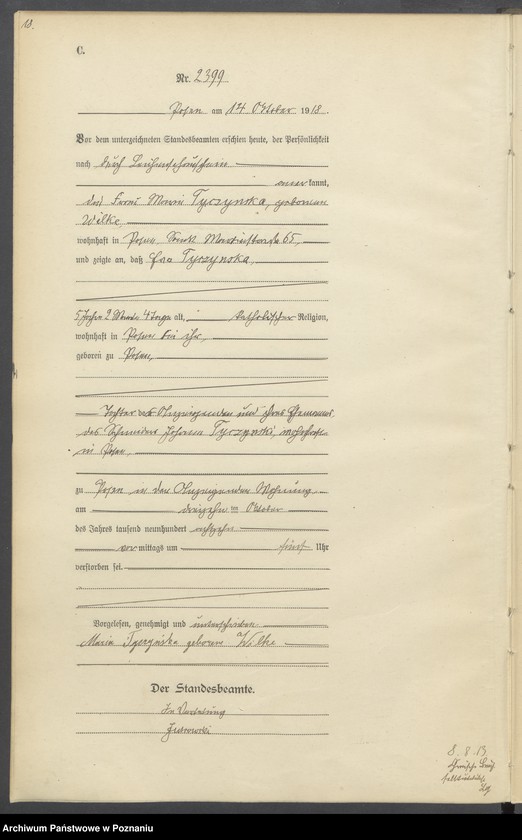 18.
C.
Nr. 2399
Posen am 14 Oktober 1918.
Vor dem unterzeichneten Standesbeamten erschien heute, der Persönlichkeit
nach durch Leichenschauschein
anerkannt,
die Frau Marie Tyczynska, geborene
Wilke,
wohnhaft in Posen, Sankt Martinstraße 65,
und zeigte an, daß Eva Tyczynska,
5 Jahre 2 Monate 4 Tage alt, katholischer Religion,
wohnhaft in Posen bei ihr,
geboren zu Posen,
Tochter der Anzeigenden und ihres Ehemannes
des Schneiders Johann Tyczynski, wohnhaft
in Posen,
zu Posen in der Anzeigenden Wohnung
am dreizehnten Oktober
des Jahres tausend neunhundert achtzehn
mittags um fünf Uhr
verstorben sei.
Vorgelesen, genehmigt und unterschrieben
Maria Tyczyńska geborene Wilke
Der Standesbeamte.
In Vertretung
8. 8. 13.
Archiwum Państwowe w Poznaniu